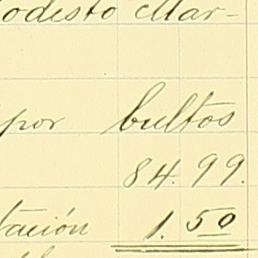 odesto Mar-
por bultos
84.99.
tación 1.50